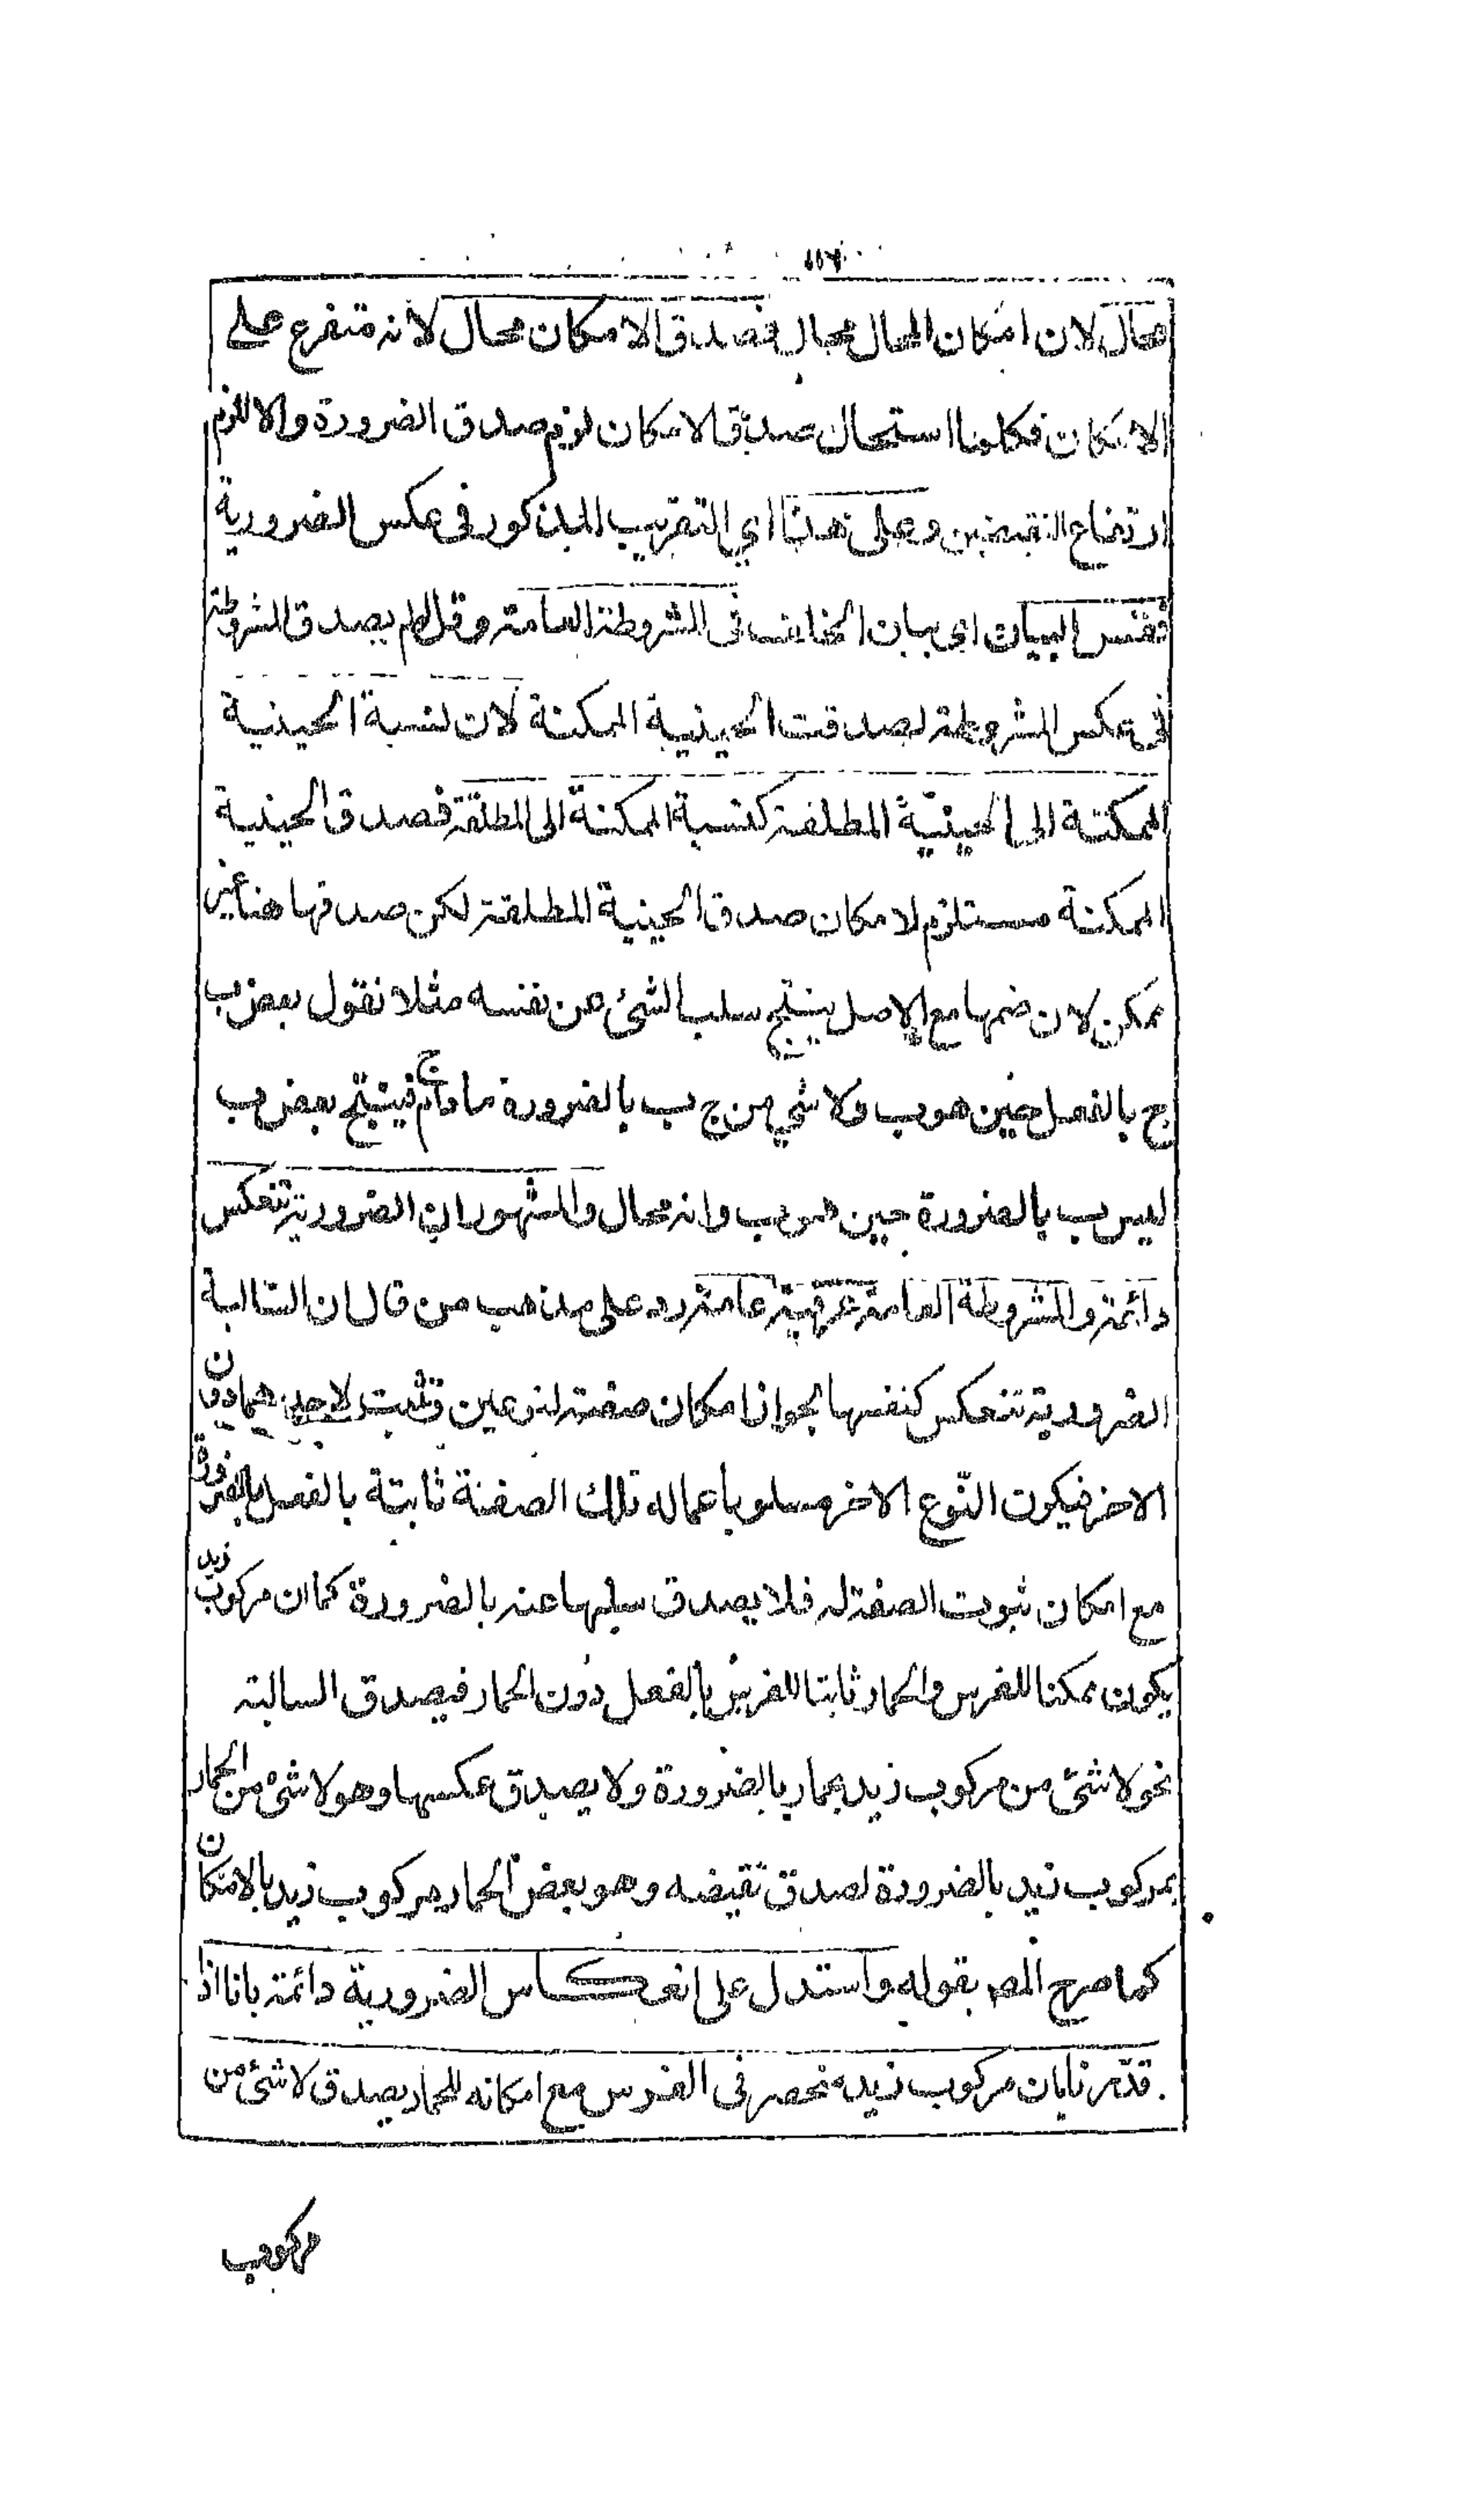 ١١٧
محال لان امكان المحال محال فصدق الامكان محال لانه متفرع على
الامكان فكلما استحال صدق الامكان لزم صدق الضرورة والا للزم
ارتفاع النقيضين وعلى هذا اي التقريب المذكور في عكس الضرورية
فقس البيان اى بيان الخلف في المشروطة العامة وقل لو لم يصدق المشروطة
في عكس المشروطة لصدقت الحينية الممكنة لان نسبة الحينية
الممكنة الى الحينيّة المطلقة كنسبة الممكنة الى المطلقة فصدق الحينية
الممكنة مستلزم لامكان صدق الحينية المطلقة لكن صدقها هنا غير
ممكن لان ضمها مع الاصل ينتج سلب الشئ عن نفسه مثلا نقول بعض ب
ج بالفعل حين هو ب ولا شئ من ج ب بالضرورة مادام ج فينتج بعض ب
ليس ب بالضرورة حين هو ب وانه محال والمشهور ان الضرورية تنعكس
دائمة والمشروطة العامة عرفية عامة رد على مذهب من قال ان السالبة
الضرورية تنعكس كنفسها لجواز امكان صفة لنوعين وتثبت لاحدهما دون
الاخر فيكون النّوع الاخر مسلوبا عما له تلك الصفة ثابتة بالفعل بالضرورة
مع امكان ثبوت الصفة له فلا يصدق سلبها عنه بالضرورة كما ان مركوب زيد
يكون ممكنا للفرس والحمار ثابتا للفرس بالفعل دون الحمار فيصدق السالبة
نحو لا شئ من مركوب زيد بحمار بالضرورة ولا يصدق عكسها وهو لا شئ من الحمار
بمركوب زيد بالضرورة لصدق نقيضه وهو بعض الحمار مركوب زيد بالامكان
كما صرح المص بقوله واستدل على انعكاس الضرورية دائمة بانا اذا
قدّرنا بان مركوب زيد منحصر فى الفرس مع امكانه للحمار يصدق لا شئ من
مركوب